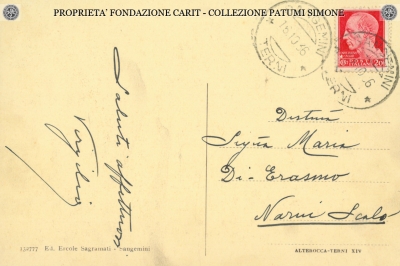 PROPRIETA' FONDAZIONE CARIT - COLLEZIONE PATUMI SIMONE
TERNI
Saluti affettuosi
Virgilio
Distinta
Sig.na Maria
Di Erasmo
Narni Scalo
Ed. Ercole Sagramati - Sangemini
ALTEROCCA-TERNI XIV